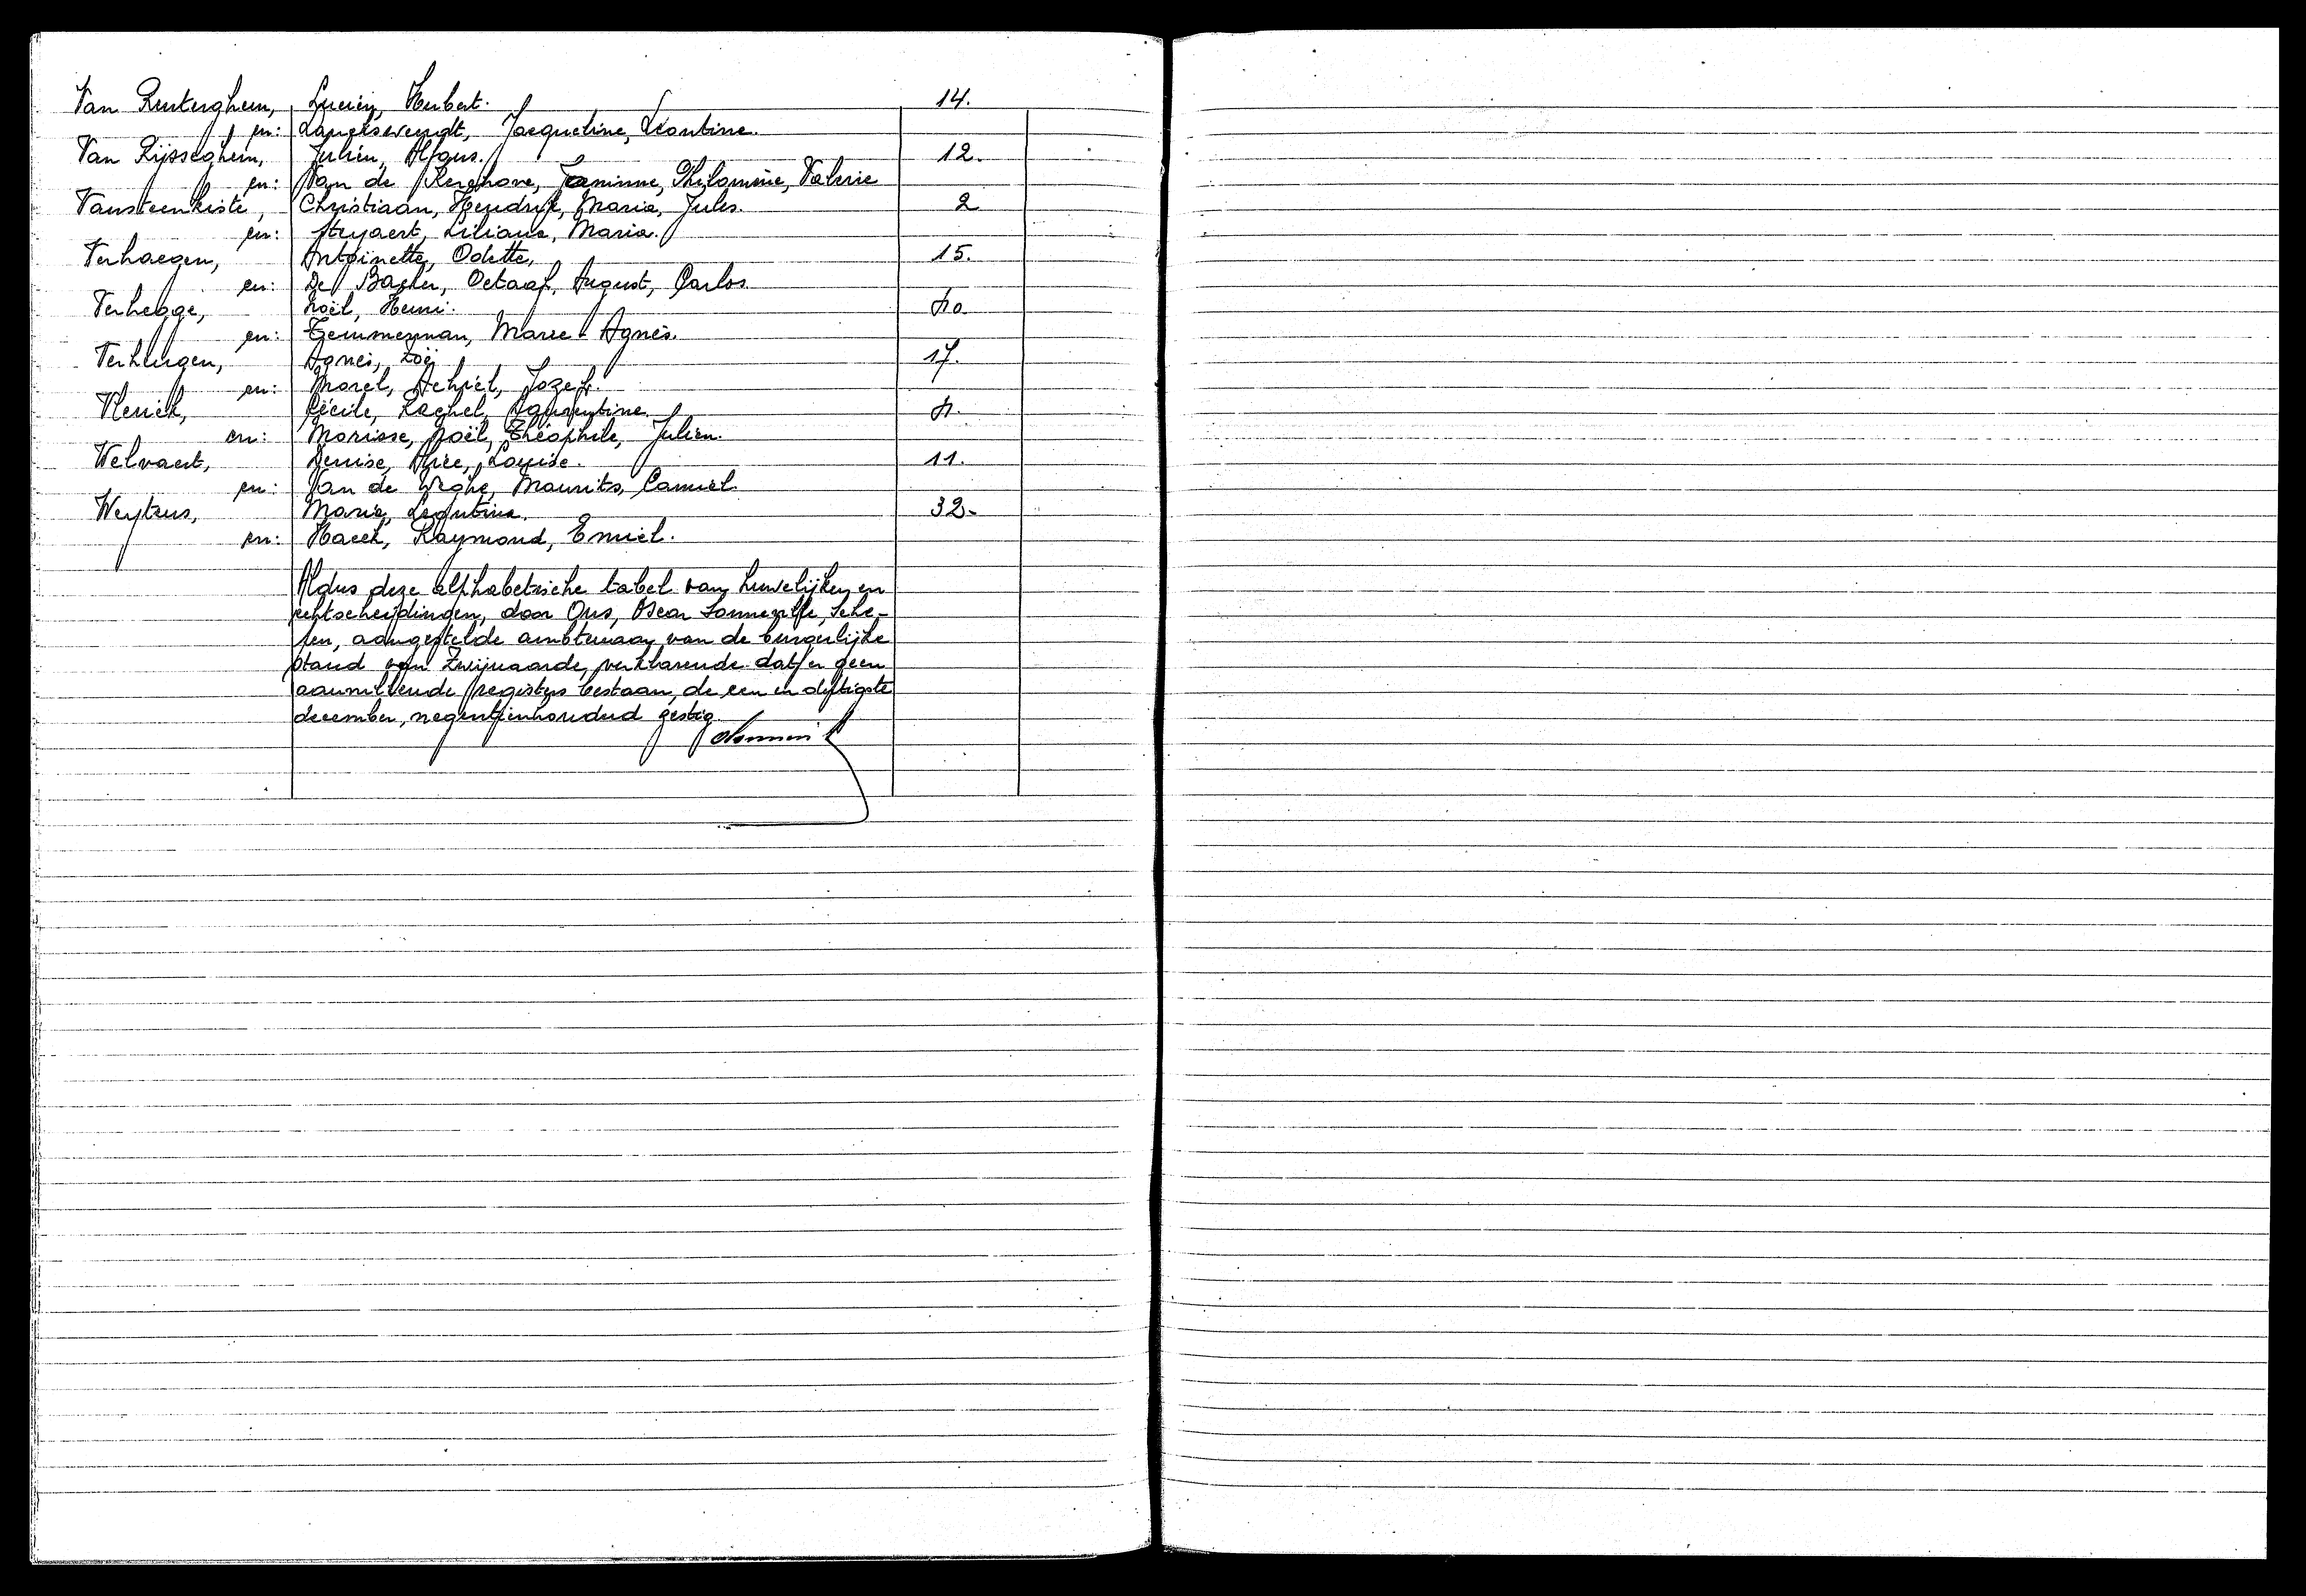 Van Renterghem, Lucien, Herbert. 14.
en: Jacqueline, Léontine.
Van Rijsseghem, Julien, Alfons. 12.
en: Van de Kerchove, Jeaninne, Philomène, Valerie
Vansteenkiste, Christiaan, Hendrik, Maria, Jules. 2
en: Stryaert, Liliane, Maria.
Verhaegen, Antoinette, Odette, 15.
en: De Backer, Octaaf, August, Carlos.
Verhegge, Noël, Henri.
en: Temmerman, Marie-Agnès.
Agnes, Zoë 17.
en: Morel, Achiel, Jozef.
Vlerick, Cécile, Rachel,
en: Morisse, Noël, Théophile, Julien.
Welvaert, Denise, Alice, Louise. 11.
en: Van de Maurits, Camiel.
Weytens, Maria, Leontine. 32-
en: Haeck, Raymond, Emiel.
Aldus deze alphabetische tabel van huwelijken en
echtscheidingen, door Ons, Oscar Sonneville, Sche-
pen, aangestelde ambtenaar van de burgerlijke
stand van Zwijnaarde, verklarende dat er geen
aanvullende registers bestaan, de een en dertigste
december, negentienhonderd zestig.